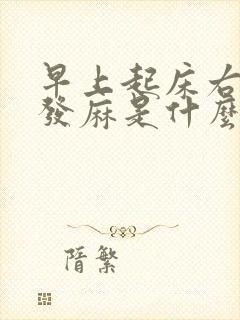 早上起床右
發麻是什麼
階繁